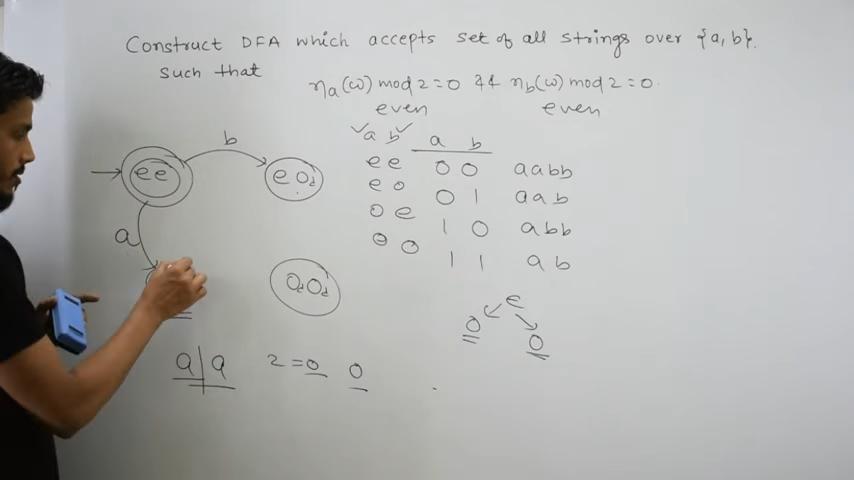 Construct DFA which accepts set of all strings over {a, b}.
such that
ηa(ω) mod 2 = 0 && ηb(ω) mod 2 = 0.
even even
✓a b✓ a b
ee 0 0 aabb
eo 0 1 aab
oe 1 0 abb
oo 1 1 ab
b
ee eOd
a
OdOd
e
o o
a|a 2 = 0 0